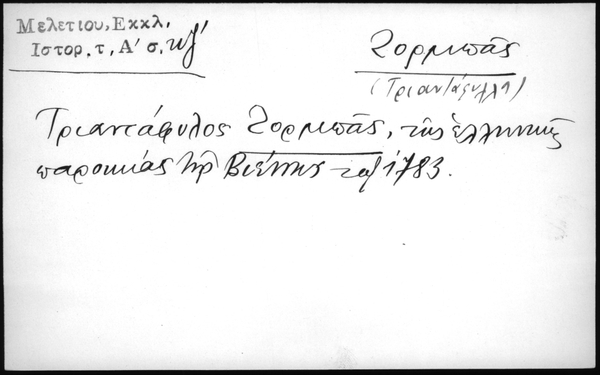 Μελετίου, Εκκλ.
Ιστορ. τ, Α' σ. κζ'
Ζορμπᾶς
(Τριαντάφυλλη)
Τριαντάφυλος Ζορμπᾶς, τῆς ἑλληνικῆς
παροικίας τῆς Βιέννης τῷ 1783.